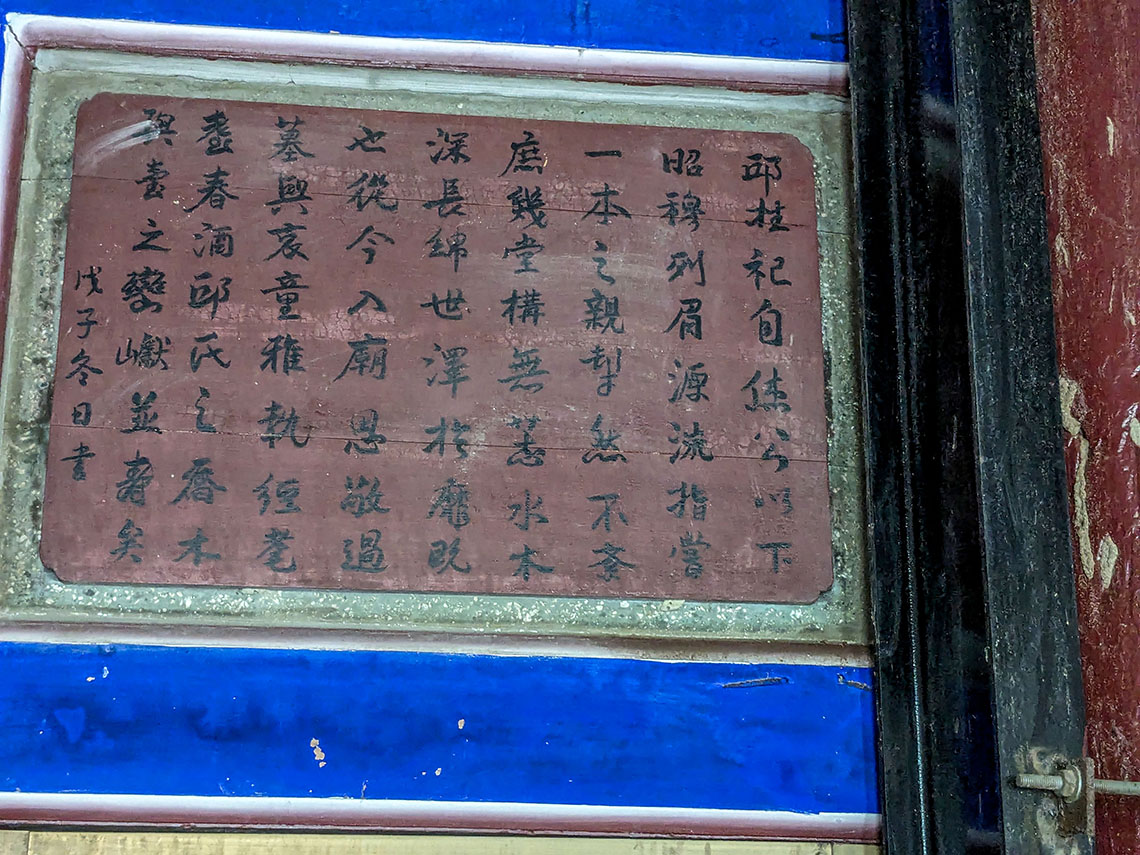 邱祠自公以下
昭穆列眉源流指掌
一本之親犁然不紊
庶幾堂構無恙水本
深長綿世澤於靡既
也從今入廟思敬過
墓興哀童雅執經耄
耋春酒邱氏之喬木
與臺之巒巘並壽矣
戊子冬日書